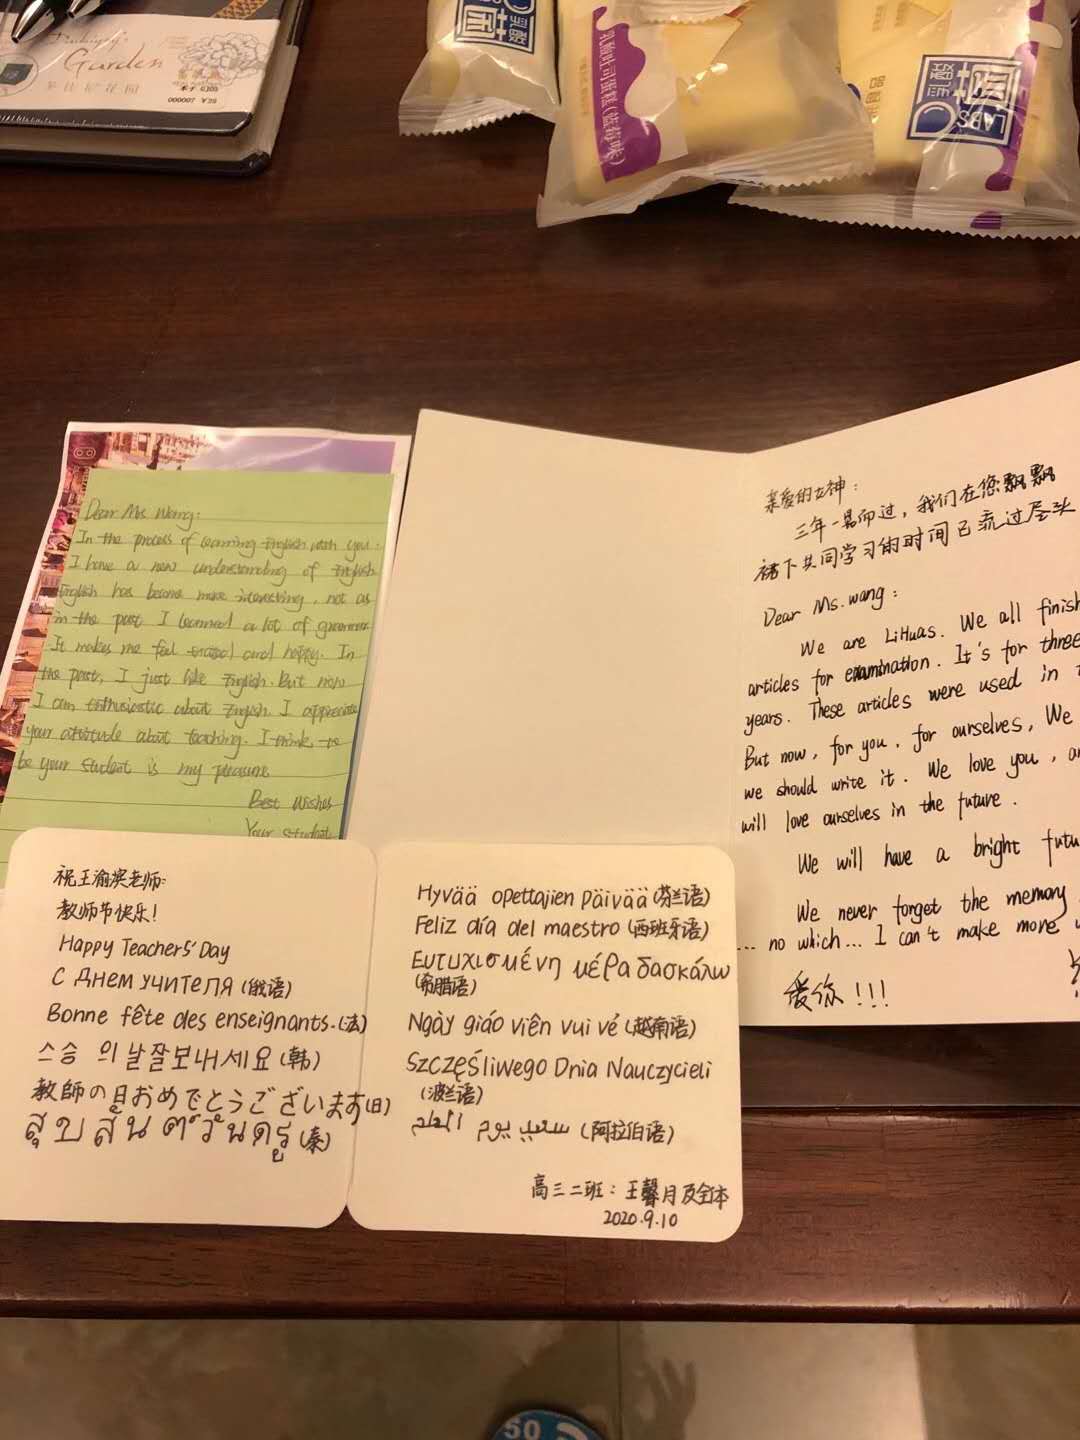 Garden
茅佳妮花园
000007 ¥28
乳酸
LABS
乳酸吐司蛋糕(蓝莓味)
Dear Ms Wang:
In the process of learning English with you.
I have a new understanding of English
English has become more interesting, not as
in the past I learned a lot of grammar.
It makes me feel and happy. In
the past, I just like English. But now
I can enthusiastic about English. I appreciate
your attitude about teaching. I think to
be your student is my pleasure
Best Wishes
Your student
亲爱的女神:
三年一晃而过，我们在您飘飘
裙下共同学习的时间已流过尽头
Dear Ms.wang:
We are LiHuas. We all finish
articles for examination. It's for three
years. These articles were used in
But now, for you, for ourselves, We
we should write it. We love you,
will love ourselves in the future.
We will have a bright futu
We never forget the memory
... no which... I can't make more
爱你!!!
祝王渝滨老师:
教师节快乐!
Happy Teachers' Day
С Днем учителя (俄语)
Bonne fête des enseignants.(法)
스승 의날잘보내세요(韩)
教師の日おめでとうございます(日)
สุขสันต์วันครู(泰)
Hyvää opettajien päivää(芬兰语)
Feliz día del maestro(西班牙语)
Ευτυχισμένη μέρα δασκάλω
(希腊语)
Ngày giáo viên vui vẻ(越南语)
Szczęśliwego Dnia Nauczycieli
(波兰语)
(阿拉伯语)
高三二班: 王馨月及全体
2020.9.10
50